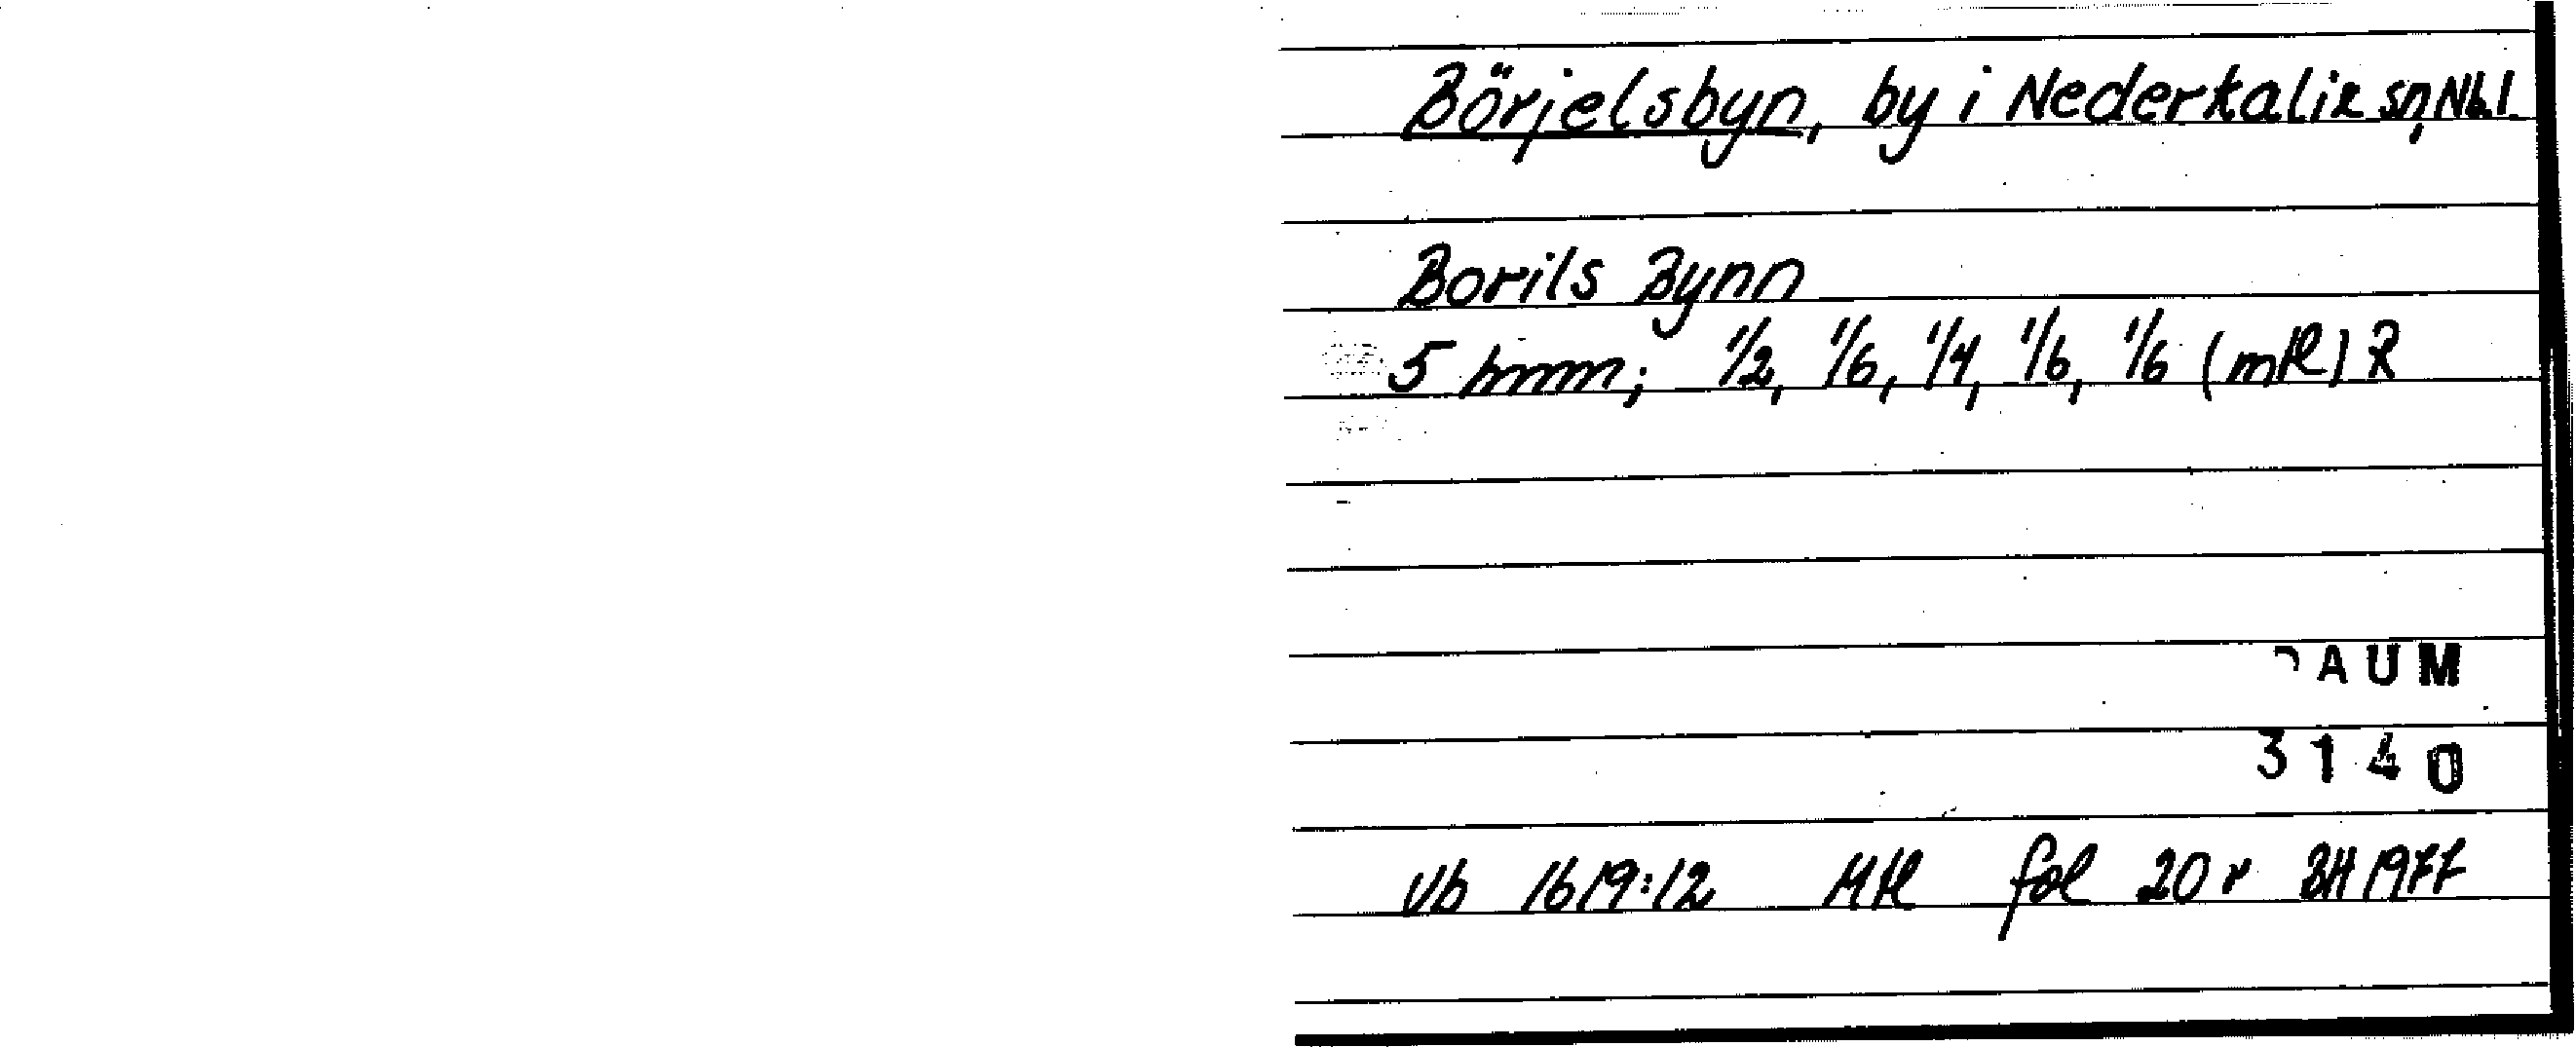 Börjelsbyn, by i Nederkalix sn, Nbl
Borils Bynn
5 hmm; 1/2, 1/6, 1/4, 1/6, 1/6 (mkl) R
DAUM
3140
Vb 1619:12 Mkl fol 20 r BH 1977